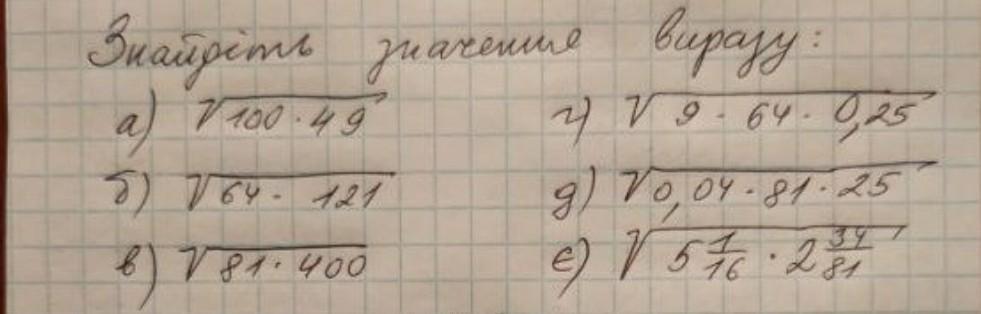 Знайдіть значення виразу:
а) √100 · 49
б) √64 · 121
в) √81 · 400
г) √9 · 64 · 0,25
д) √0,04 · 81 · 25
е) √5 1/16 · 2 34/81